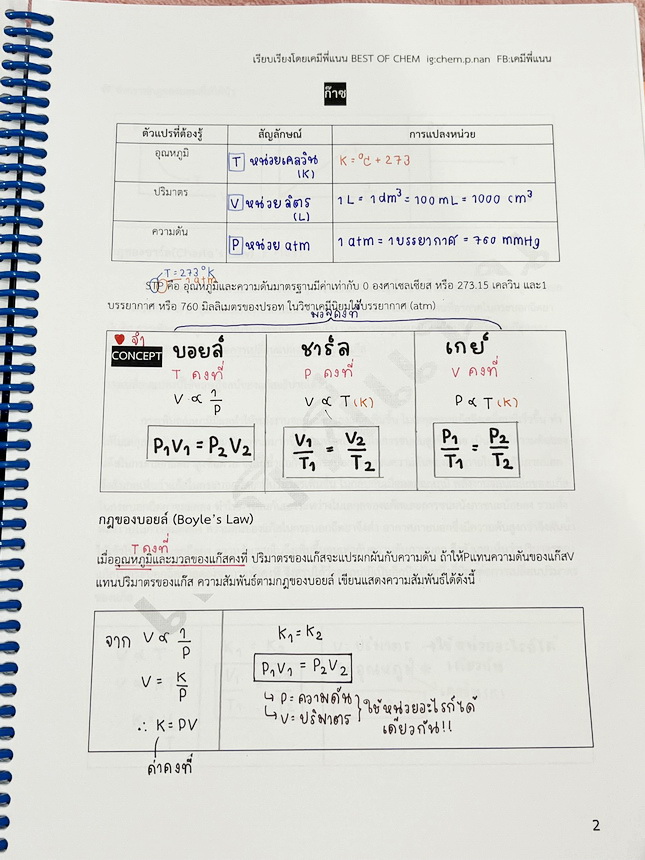 เรียบเรียงโดยเคมีพี่แนน BEST OF CHEM ig:chem.p.nan FB:เคมีพี่แนน
ก๊าซ
ตัวแปรที่ต้องรู้ สัญลักษณ์ การแปลงหน่วย
อุณหภูมิ T หน่วยเคลวิน (K) K = °C + 273
ปริมาตร V หน่วยลิตร (L) 1 L = 1 dm³ = 100 mL = 1000 cm³
ความดัน P หน่วย atm 1 atm = 1 บรรยากาศ = 760 mmHg
T = 273 °K
1 atm
STP คือ อุณหภูมิและความดันมาตรฐานมีค่าเท่ากับ 0 องศาเซลเซียส หรือ 273.15 เคลวิน และ1
บรรยากาศ หรือ 760 มิลลิเมตรของปรอท ในวิชาเคมีนิยมใช้บรรยากาศ (atm)
มวลคงที่
♥ จำ
CONCEPT บอยล์ ชาร์ล เกย์
T คงที่ P คงที่ V คงที่
V ∝ 1/P V ∝ T (K) P ∝ T (K)
P₁V₁ = P₂V₂ V₁/T₁ = V₂/T₂ P₁/T₁ = P₂/T₂
กฎของบอยล์ (Boyle's Law)
T คงที่
เมื่ออุณหภูมิและมวลของแก๊สคงที่ ปริมาตรของแก๊สจะแปรผกผันกับความดัน ถ้าให้Pแทนความดันของแก๊สV
แทนปริมาตรของแก๊ส ความสัมพันธ์ตามกฎของบอยล์ เขียนแสดงความสัมพันธ์ได้ดังนี้
จาก V ∝ 1/P
V = K/P
∴ K = PV
ค่าคงที่
K₁ = K₂
P₁V₁ = P₂V₂
↳ P = ความดัน
↳ V = ปริมาตร
} ใช้หน่วยอะไรก็ได้
เดียวกัน!!
2